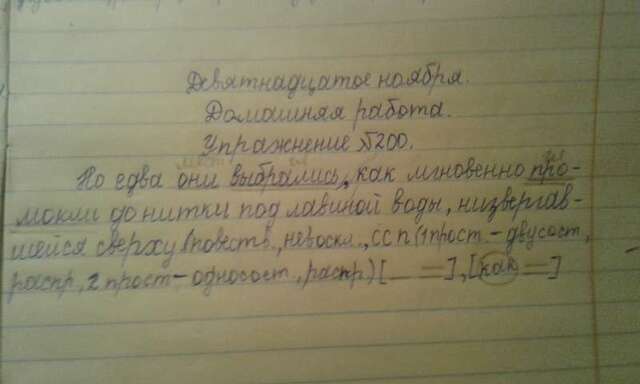 Девятнадцатое ноября.
Домашняя работа.
Упражнение №200.
Но едва они выбрались, как мгновенно про-
мокли до нитки под лавиной воды, низвергав-
шейся сверху (повеств., невоскл., ссп (1 прост - двусост.,
распр, 2 прост - односост, распр) [ ], [как ]